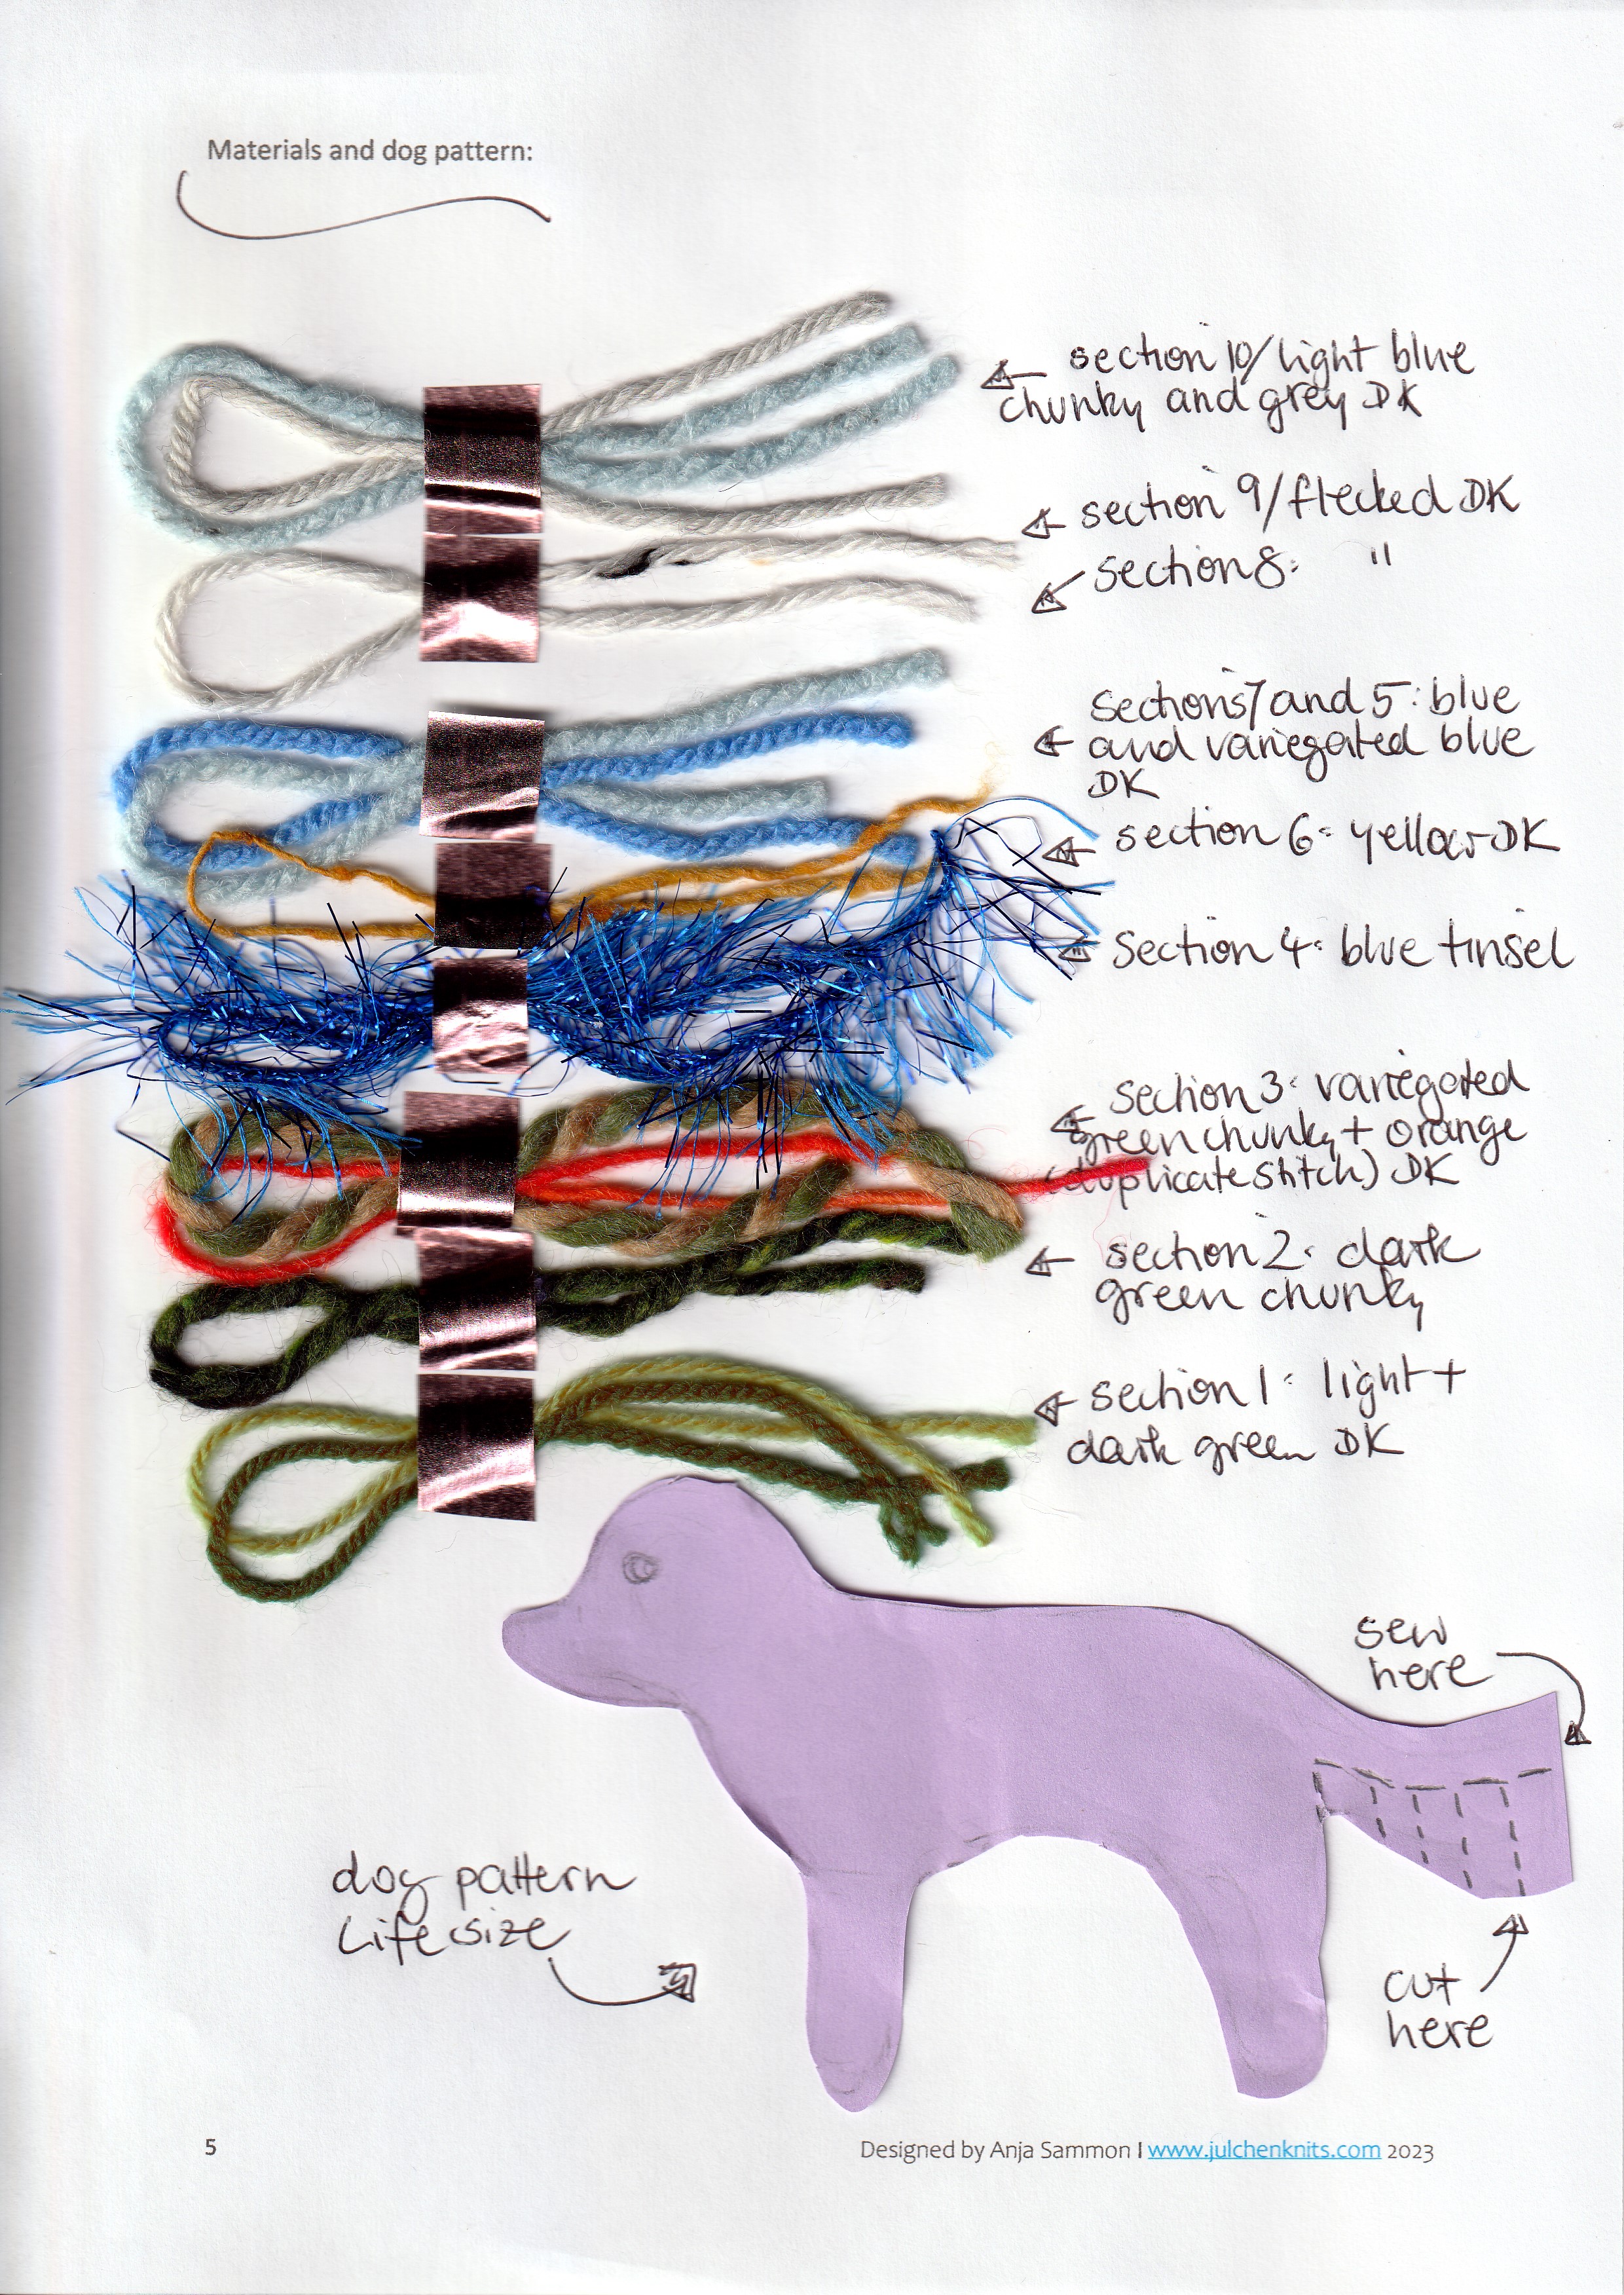 Materials and dog pattern:
section 10/light blue
chunky and grey DK
section 9/flecked DK
section 8: "
sections 7 and 5: blue
and variegated blue
DK
section 6: yellow DK
section 4: blue tinsel
section 3: variegated
green chunky + orange
(duplicate stitch) DK
section 2: dark
green chunky
section 1: light +
dark green DK
sew
here
dog pattern
Life size
cut
here
5
Designed by Anja Sammon I www.julchenknits.com 2023